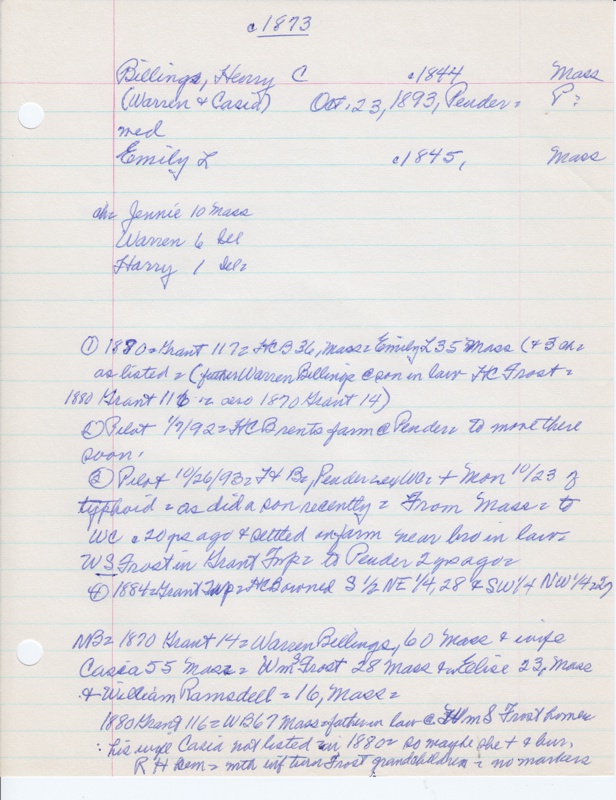 c1873
Billings, Henry C c1844 Mass
(Warren + Casia) Oct. 23, 1893, Pender = P?
med
Emily L c1845, Mass
ch= Jennie 10 Mass
Warren 6 Del
Harry 1 Del=
① 1880=Grant 117=HCB 36, Mass=Emily L 35 Mass (+3 ch=
as listed = (father Warren Billings @ son in law HC Frost=
1880 Grant 116 = also 1870 Grant 14)
② Pilot 1/7/92=HCB rents farm @ Pender= to move there
soon.
③ Pilot 10/26/93=HB=, Pender + Mon 10/23 of
typhoid = as did a son recently = From Mass= to
WC c20 yrs ago & settled on farm near bro in law=
WS Frost in Grant Twp= to Pender 2 yrs ago=
④ 1884=Grant Twp=HCB owned S 1/2 NE 1/4, 28 & SW 1/4 NW 1/4=27
NB= 1870 Grant 14=Warren Billings, 60 Mass & wife
Casia 55 Mass= Wm S Frost 28 Mass & Elise 23, Mass
& William Ramsdell=16, Mass=
1880 Grant 116=WB 67 Mass=father in law @ Wm S Frost home=
: his wife Casia not listed in 1880= so maybe she + & bur.
R H Cem= with inf twin Frost grandchildren = no markers